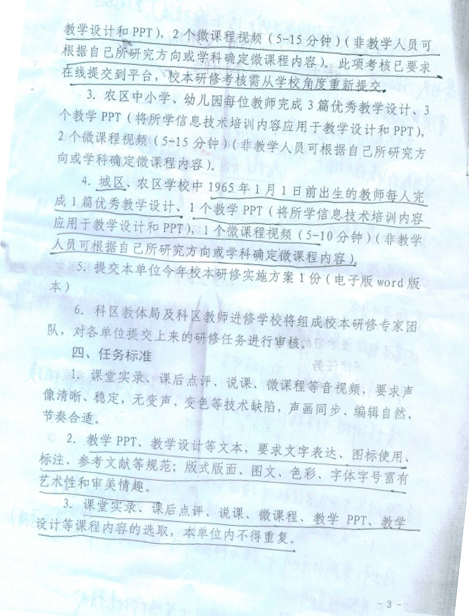 教学设计和PPT），2个微课程视频（5-15分钟）（非教学人员可
根据自己所研究方向或学科确定微课程内容）。此项考核已要求
在线提交到平台，校本研修考核需从学校角度重新提交。
3. 农区中小学、幼儿园每位教师完成3篇优秀教学设计、3
个教学PPT（将所学信息技术培训内容应用于教学设计和PPT），
2个微课程视频（5-15分钟）（非教学人员可根据自己所研究方
向或学科确定微课程内容）。
4. 城区、农区学校中1965年1月1日前出生的教师每人完
成1篇优秀教学设计、1个教学PPT（将所学信息技术培训内容
应用于教学设计和PPT），1个微课程视频（5-10分钟）（非教学
人员可根据自己所研究方向或学科确定微课程内容）。
5. 提交本单位今年校本研修实施方案1份（电子版word版
本）
6. 科区教体局及科区教师进修学校将组成校本研修专家团
队，对各单位提交上来的研修任务进行审核。
四、任务标准
1. 课堂实录、课后点评、说课、微课程等音视频，要求声
像清晰、稳定，无变声、变色等技术缺陷，声画同步、编辑自然、
节奏合适。
2. 教学PPT、教学设计等文本，要求文字表达、图标使用、
标注、参考文献等规范；版式版面、图文、色彩、字体字号富有
艺术性和审美情趣。
3. 课堂实录、课后点评、说课、微课程、教学PPT、教学
设计等课程内容的选取，本单位内不得重复。
- 3 -